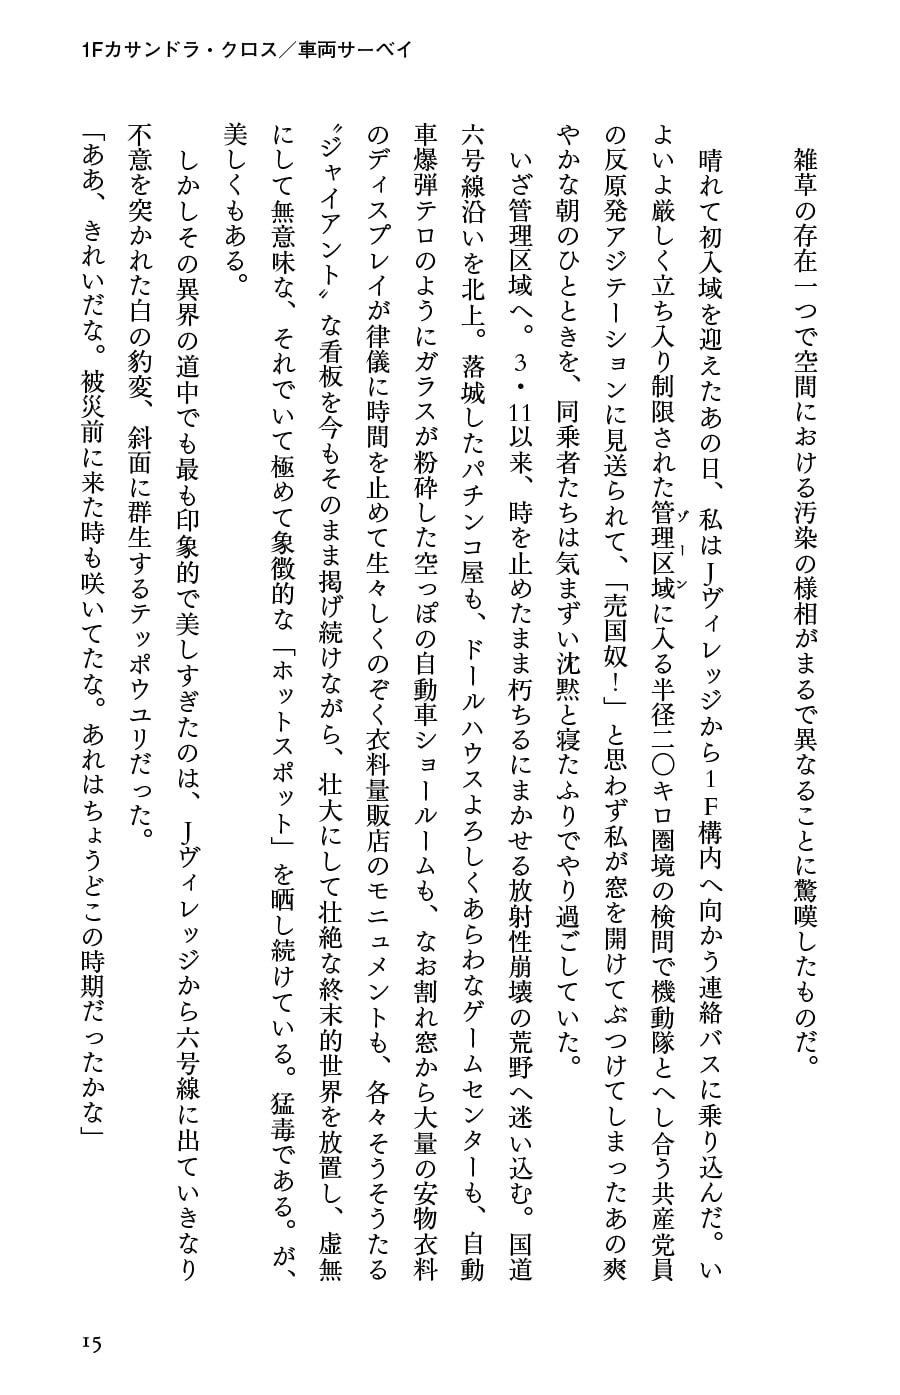 1Fカサンドラ・クロス／車両サーベイ
雑草の存在一つで空間における汚染の様相がまるで異なることに驚嘆したものだ。
晴れて初入域を迎えたあの日、私はJヴィレッジから1F構内へ向かう連絡バスに乗り込んだ。い
よいよ厳しく立ち入り制限された管理区域に入る半径二〇キロ圏境の検問で機動隊とへし合う共産党員
ゾーン
の反原発アジテーションに見送られて、「売国奴！」と思わず私が窓を開けてぶつけてしまったあの爽
やかな朝のひとときを、同乗者たちは気まずい沈黙と寝たふりでやり過ごしていた。
いざ管理区域へ。3・11以来、時を止めたまま朽ちるにまかせる放射性崩壊の荒野へ迷い込む。国道
六号線沿いを北上。落城したパチンコ屋も、ドールハウスよろしくあらわなゲームセンターも、自動
車爆弾テロのようにガラスが粉砕した空っぽの自動車ショールームも、なお割れ窓から大量の安物衣料
のディスプレイが律儀に時間を止めて生々しくのぞく衣料量販店のモニュメントも、各々そうそうたる
〝ジャイアント〟な看板を今もそのまま掲げ続けながら、壮大にして壮絶な終末的世界を放置し、虚無
にして無意味な、それでいて極めて象徴的な「ホットスポット」を晒し続けている。猛毒である。が、
美しくもある。
しかしその異界の道中でも最も印象的で美しすぎたのは、Jヴィレッジから六号線に出ていきなり
不意を突かれた白の豹変、斜面に群生するテッポウユリだった。
「ああ、きれいだな。被災前に来た時も咲いてたな。あれはちょうどこの時期だったかな」
15